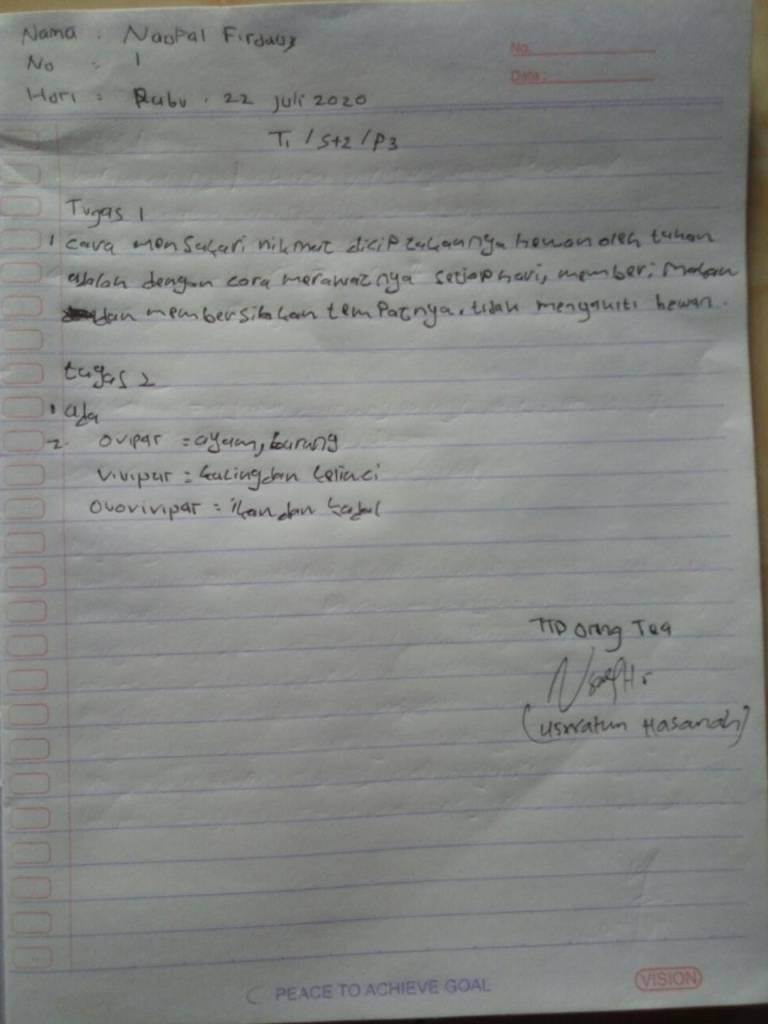 Nama : Naopal Firdaus
No : 1
Hari : Rabu . 22 juli 2020
No.
Date :
T1 / St2 / P3
Tugas 1
1 cara mensukuri nikmat diciptakannya hewan oleh tuhan
adalah dengan cara merawatnya setiap hari, memberi makan
dan membersihkan tempatnya. tidak menyakiti hewan.
tugas 2
1. ada
2. ovipar = ayam, burung
vivipar = kucing dan kelinci
ovovivipar = ikan dan kadal
TTD Orang Tua
(Uswatun Hasanah)
PEACE TO ACHIEVE GOAL
VISION